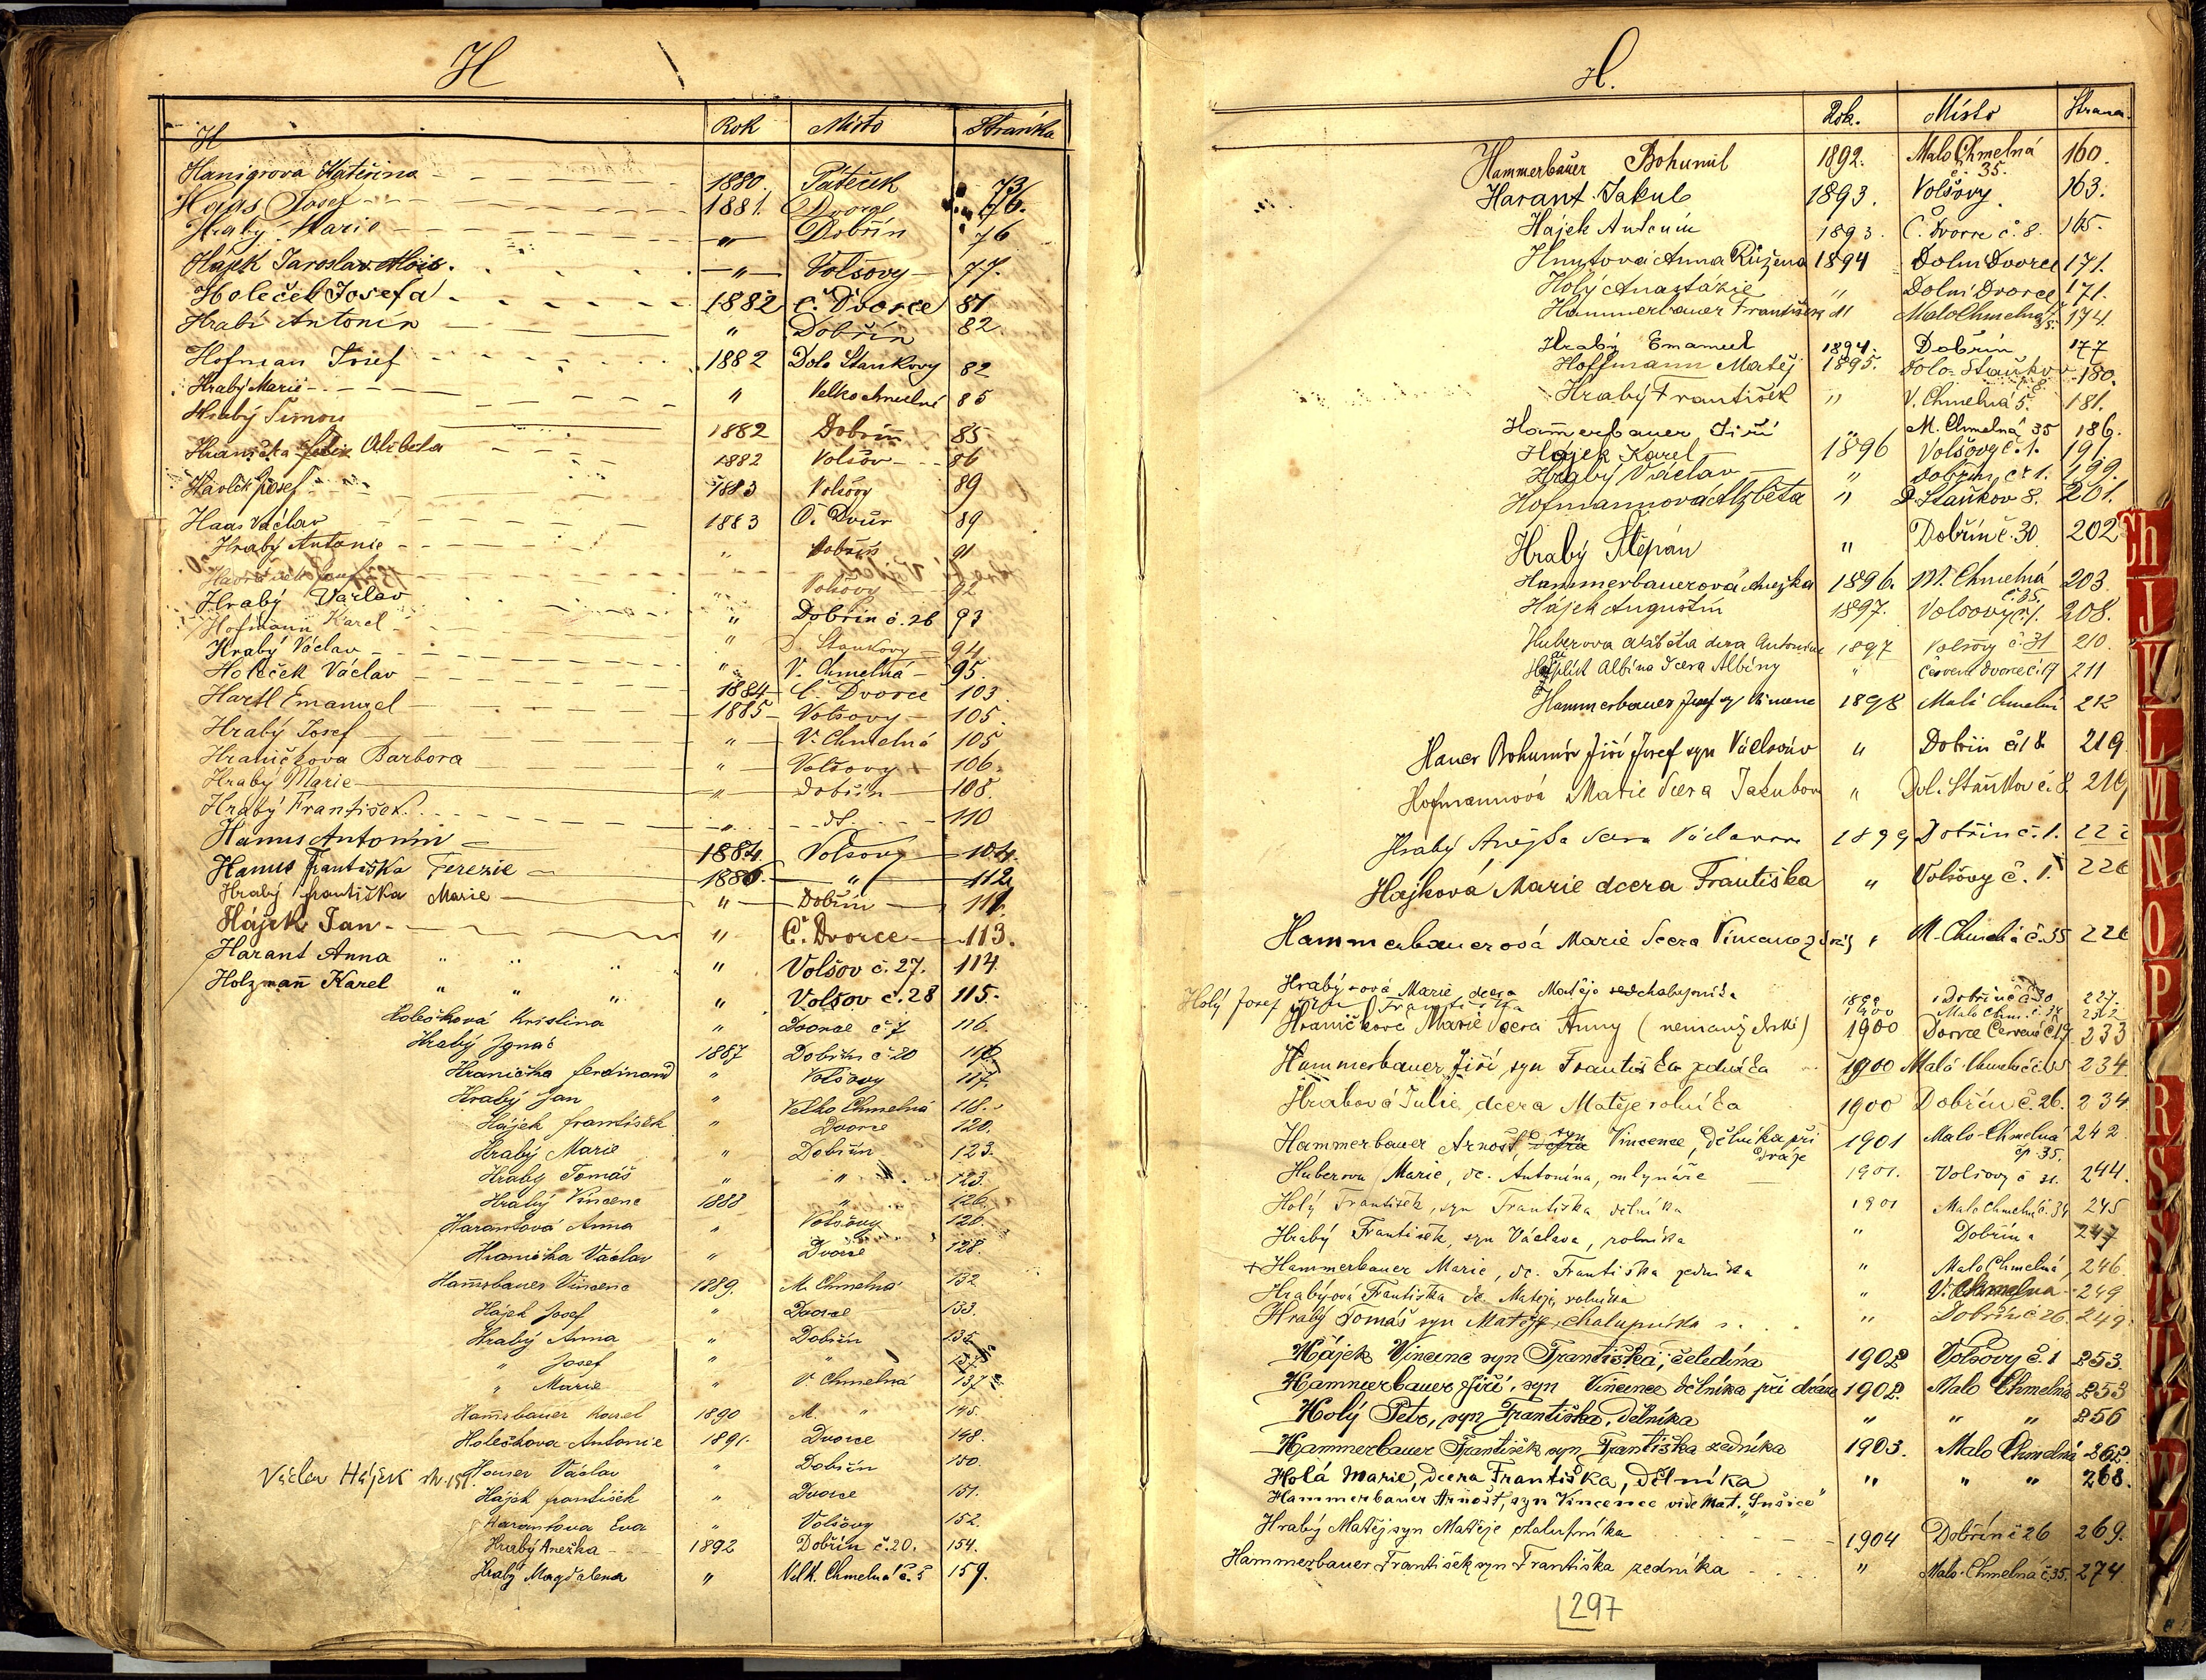 H
Rok Místo Stránka
H
Hanigrova Kateřina 1880. Páteček 73
Haas Josef 1881. Dvorce 76.
Hrabý Marie " Dobřín 76
Hájek Jaroslav Alois. " Volšovy 77.
Holeček Josefa 1882 Č. Dvorce 81
Hrabí Antonín " Dobřín 82
Hofman Josef 1882 Dolo Stankovy 82
Hrabý Marie " Velkochmelné 85
Hrabý Šimon 1882 Dobřín 85
Hranička Alžběta 1882 Volšov 86
Havlík Josef 1883 Volšovy 89
Haas Václav 1883 Č. Dvůr 89
Hrabý Antonie " Dobřín 91
" Volšovy 92
Hrabý Václav " Dobřín č. 26 93
Hofmann Karel " D. Stankovy 94
Hrabý Václav " V. Chmelná 95.
Holeček Václav 1884 Č. Dvorce 103
Hartl Emanuel 1885 Volšovy 105
Hrabý Josef " V. Chmelná 105
Hraničkova Barbora " Volšovy 106.
Hrabý Marie " Dobřín 108.
Hrabý František " dt. 110
Hanus Antonín 1884. Volšovy 104.
Hanus Františka Terezie 1886. " 112
Hrabý Františka Marie " Dobřín 111
Hájek Jan " Č. Dvorce 113.
Harant Anna " Volšov č. 27. 114.
Holzmañ Karel " Volšov č. 28 115.
Holečková Kristina " Dvorce č 7 116.
Hrabý Ignác 1887 Dobřín č 20 116
Hranička Ferdinand " Volšovy 117
Hrabý Jan " Velko Chmelná 118.
Hájek František " Dvorce 120.
Hrabý Marie " Dobřín 123.
Hrabý Tomáš " " 123.
Hrabý Vincenc 1888 " 126.
Harantová Anna " Volšovy 126.
Hranička Václav " Dvorce 128.
Ham̄rbauer Vincenc 1889. M. Chmelná 132
Hájek Josef " Dvorce 133.
Hrabý Anna " Dobřín 135
" Josef " " 137
" Marie " V. Chmelná 137
Ham̄rbauer Karel 1890 M. " 145.
Holečkova Antonie 1891. Dvorce 148.
Houser Václav " Dobřín 150.
Václav Hájek str. 151.
Hájek František " Dvorce 151.
Harantova Eva " Volšovy 152.
Hrabý Anežka 1892 Dobřín č. 20. 154.
Hrabý Magdalena " Velk. Chmelná č. 5 159.
H.
Rok. Místo Strana.
Hammerbauer Bohumil 1892. Malo Chmelná č. 35. 160.
Harant Jakub 1893. Volšovy. 163.
Hájek Antonín 1893. Č. Dvorce č. 8. 165.
Hnutová Anna Růžena 1894 Dolní Dvorce 171.
Holý Anastázie " Dolní Dvorce 171.
Hammerbauer Františka dt Malo Chmelná 35. 174.
Hrabý Emanuel 1894. Dobřín 177
Hoffmann Matěj 1895. Dolo-Staňkov č. 8 180.
Hrabý František " V. Chmelná 5. 181.
Ham̄erbauer Jiří " M. Chmelná 35 186.
Hájek Karel 1896 Volšovy č. 1. 191.
Hrabý Václav " Dobřín, č. 1. 199.
Hofmannová Alžběta " D. Staňkov 8. 201.
Hrabý Štěpán " Dobřín č. 30 202
Hammerbauerová Anežka 1896. M. Chmelná č. 35. 203
Hájek Augustin 1897. Volšovy č. 1. 208.
Huberova Alžběta dcera Antonína 1897 Volšovy č. 31 210.
Albína dcera Albíny " Červené Dvorce č. 19 211
Hammerbauer Josef sy Vincence 1898 Malá Chmelná 212
Hauer Bohumír Jiří Josef syn Václavův " Dobřín č. 18 219
Hofmannová Marie dcera Jakubova " Dol. Staňkov č. 8. 219
Hrabý Anežka dcera Václavova 1899 Dobřín č. 1. 222
Hájková Marie dcera Františka " Volšovy č. 1. 226
Hammerbauerová Marie dcera Vincence " M. Chmelná č. 35 226
Hrabý-ová Marie dcera Matěje chalupníka 1899 Dobřín č. 30 227.
Holý Josef syn Františka 1900 Malo Chm. č. 34 232
Hraničková Marie dcera Anny (nemanželská) 1900 Dvorce Červené č. 19 233
Hammerbauer Jiří, syn Františka zedníka 1900 Malá-Chmelná č. 35 234
Hrabová Julie, dcera Matěje rolníka 1900 Dobřín č. 26. 234
Hammerbauer Arnošt, syn Vincence, dělníka při dráze 1901 Malo-Chmelná čp. 35. 242
Huberova Marie, dc. Antonína, mlynáře 1901. Volšovy č 31. 244.
Holý František, syn Františka, dělníka 1901 Malo Chmelná č. 34 245
Hrabý František, syn Václava, rolníka " Dobřín 247
+ Hammerbauer Marie, dc. Františka zedníka " Malo Chmelná, 246.
Hrabýová Františka dc. Matěje, rolníka " V. Chmelná 249
Hrabý Tomáš syn Matěje, chalupníka " Dobřín č 26. 249.
Hájek Vincenc syn Františka, čeledína 1902 Volšovy č. 1 253.
Hammerbauer Jiří, syn Vincence dělníka při dráze 1902. Malo Chmelná 253
Holý Petr, syn Františka, dělníka " " " 256
Hammerbauer František syn Františka zedníka 1903. Malo Chmelná 262.
Holá Marie, dcera Františka, dělníka " " " 268.
Hammerbauer Arnošt, syn Vincence vide Mat. „Sušice"
Hrabý Matěj syn Matěje chalupníka 1904 Dobřín č 26 269.
Hammerbauer František syn Františka zedníka " Malo-Chmelná č. 35. 274.
297
Ch
J
K
L
M
N
O
P
R
S